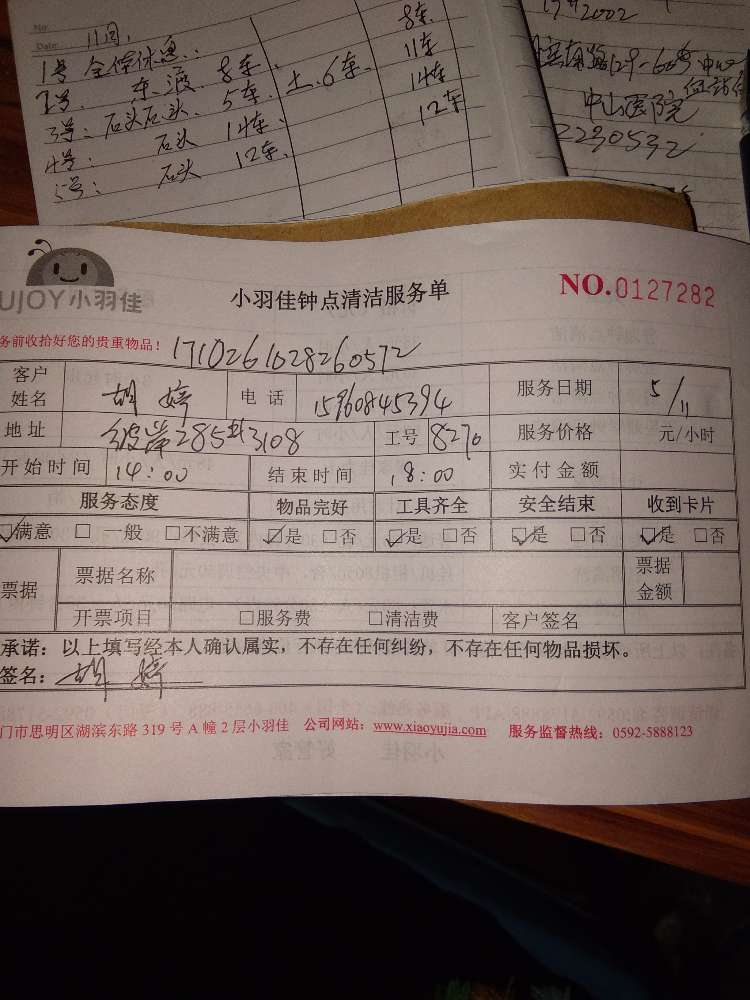 No.
Date. 11月1
1号 全停休息. 8车
2号. 车渡. 8车. 11车
3号: 石头石头. 5车. 土. 6车. 14车
4号: 石头 14车 12车
5号: 石头 12车.
2002
中山医院
2230532
UJOY小羽佳
小羽佳钟点清洁服务单
NO.0127282
务前收拾好您的贵重物品!
1710261628260572
客户姓名 胡婷 电话 15960845394 服务日期 5/11
地址 285#3108 工号 8270 服务价格 元/小时
开始时间 14:00 结束时间 18:00 实付金额
服务态度 物品完好 工具齐全 安全结束 收到卡片
☑满意 □一般 □不满意 ☑是 □否 ☑是 □否 ☑是 □否 ☑是 □否
票据 票据名称 票据金额
开票项目 □服务费 □清洁费 客户签名
承诺：以上填写经本人确认属实，不存在任何纠纷，不存在任何物品损坏。
签名：胡婷
门市思明区湖滨东路 319 号 A 幢 2 层小羽佳 公司网站：www.xiaoyujia.com 服务监督热线：0592-5888123